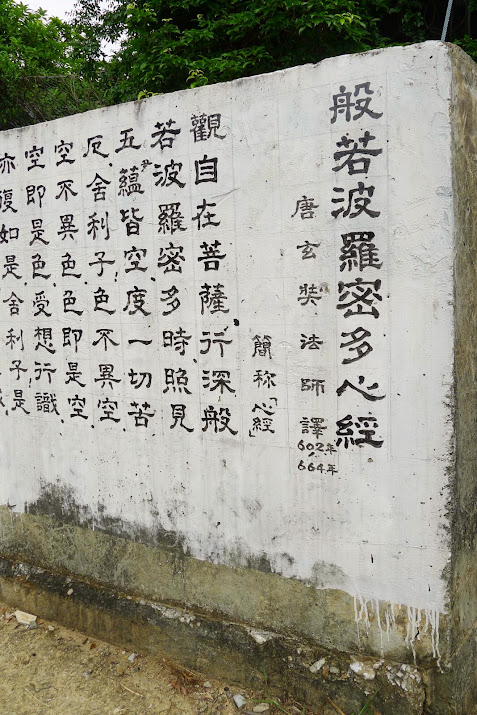 般若波羅密多心經
唐玄奘法師譯
602年
664年
簡称「心經」
觀自在菩薩,行深般
若波羅密多時.照見
五蘊皆空.度一切苦
厄.舍利子.色不異空
空不異色.色即是空.
空即是色.受想行識.
亦復如是.舍利子是